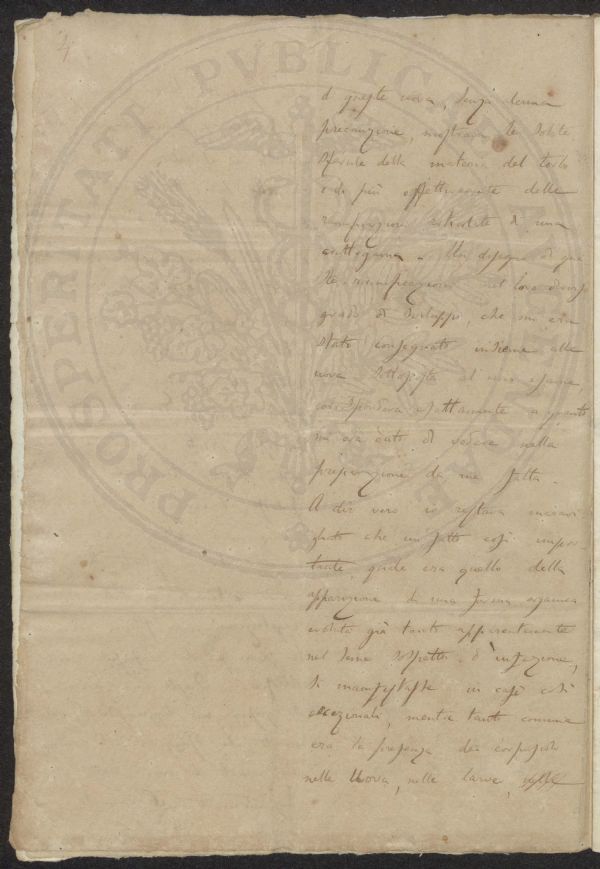 4
PROSPERITATI PUBLICAE AUGENDAE
di queste uova, senza veruna
precauzione, mostrava le solite
sferule della materia del torlo
e di più effettivamente delle
ramificazioni di una
crittogama. Un disegno di que
ste ramificazioni nel loro
grado di sviluppo, che mi era
stato consegnato insieme alle
uova sottoposte al mio esame
corrispondeva esattamente a quanto
mi era dato di vedere nella
preparazione da me fatta.
A dir vero io restava meravi
gliato che un fatto così impor
tante, quale era quello della
apparizione di una forma organica
evoluta già tanto apparentemente
nel seme sospetto d'infezione,
si manifestasse in casi così
eccezionali, mentre tanto comune
era la presenza dei corpuscoli
nelle uova, nelle larve,